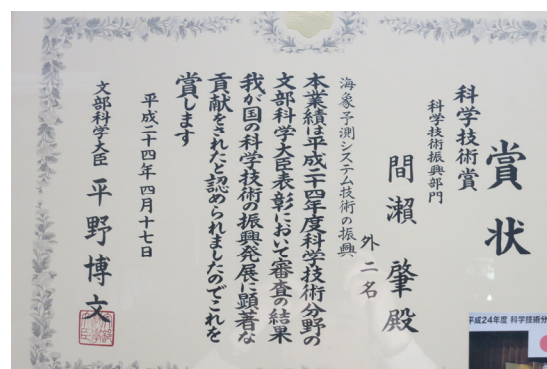 賞状
科学技術賞
科学技術振興部門
間瀬 肇殿
外二名
海象予測システム技術の振興
本業績は平成二十四年度科学技術分野の
文部科学大臣表彰において審査の結果
我が国の科学技術の振興発展に顕著な
貢献をされたと認められましたのでこれを
賞します
平成二十四年四月十七日
文部科学大臣 平野博文
平成24年度 科学技術分